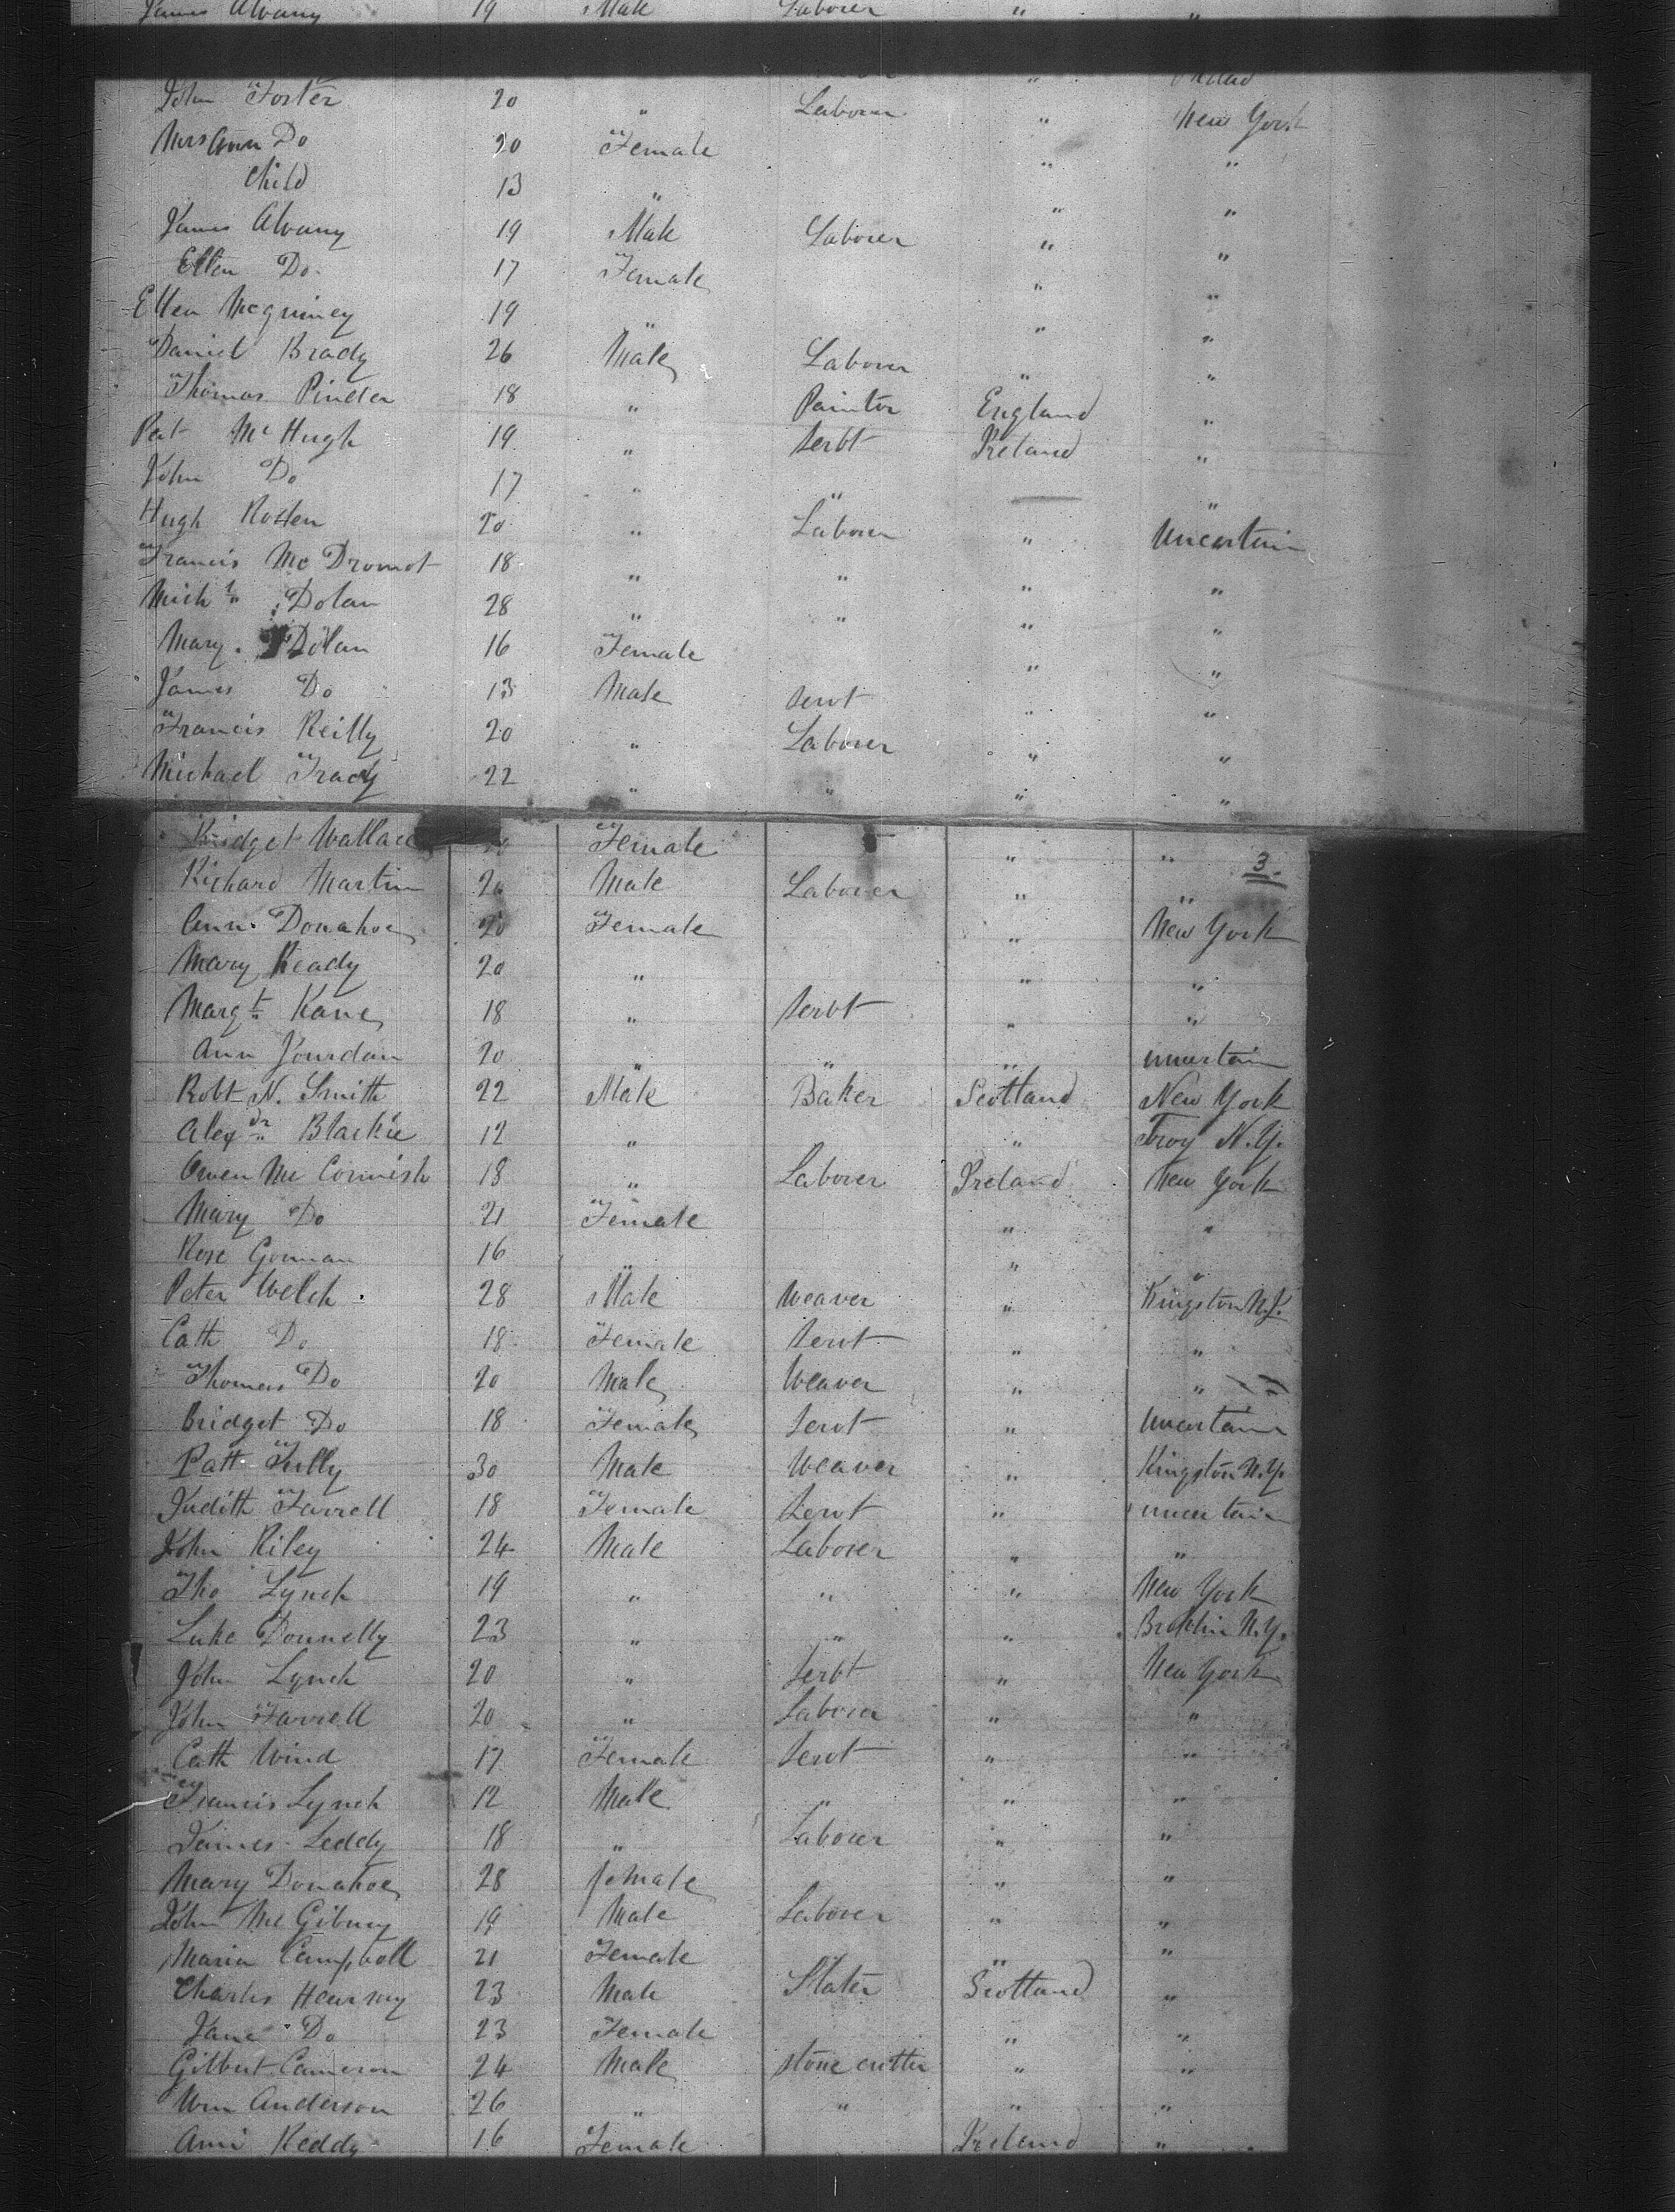 James Alvany 19 Male Laborer " "
John Foster 20 " Laborer " New York
Mrs Ann Do 20 Female " "
Child 13 " " "
James Alvany 19 Male Laborer " "
Ellen Do 17 Female " "
Ellen McGuiney 19 " " "
Daniel Brady 26 Male Laborer " "
Thomas Pinder 18 " Painter England "
Pat McHugh 19 " Servt Ireland "
John Do 17 " " "
Hugh Rotten 20 " Laborer " Uncertain
Francis McDromot 18 " " " "
Michl Dolan 28 " " " "
Mary Dolan 16 Female " "
James Do 13 Male Servt " "
Francis Reilly 20 " Laborer " "
Michael Tracy 22 " " " "
Bridget Wallace Female " "
3.
Richard Martin Male Laborer " "
Ann Donahoe 20 Female " New York
Mary Ready 20 " " "
Margt Kane 18 " Servt " "
Ann Jourdan 20 " " " uncertain
Robt N. Smith 22 Male Baker Scotland New York
Alexdr Blackie 12 " " Troy N.Y.
Owen McCormish 18 " Laborer Ireland New York
Mary Do 21 Female " "
Rose Gorman 16 " " "
Peter Welch 28 Male Weaver " Kingston N.Y.
Cath Do 18 Female Servt " "
Thomas Do 20 Male Weaver " "
Bridget Do 18 Female Servt " Uncertain
Patt Tully 30 Male Weaver " Kingston N.Y.
Judith Farrell 18 Female Servt " uncertain
John Riley 24 Male Laborer " "
Tho Lynch 19 " " " New York
Luke Donnelly 23 " " " Broklin N.Y.
John Lynch 20 " Servt " New York
John Farrell 20 " Laborer " "
Cath Wind 17 Female Servt " "
Francis Lynch 12 Male " " "
James Leddy 18 " Laborer " "
Mary Donahoe 28 female " "
John McGibney 19 Male Laborer " "
Maria Campbell 21 Female " "
Charles Hearney 23 Male Slater Scotland "
Jane Do 23 Female " "
Gilbert Cameron 24 Male stone cutter " "
Wm Anderson 26 " " " "
Ann Reddy 16 Female Ireland "